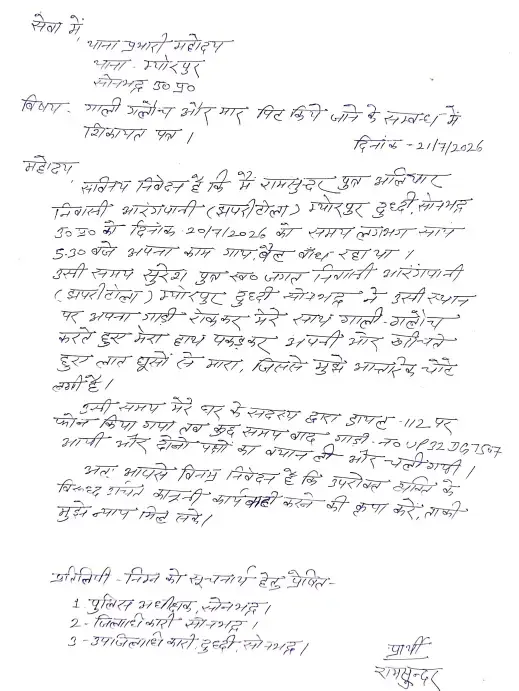 सेवा में,
थाना प्रभारी महोदय
थाना - म्योरपुर
सोनभद्र उ० प्र०
विषय - गाली गलौच और मार पिट किये जाने के सम्बन्ध में
शिकायत पत्र ।
दिनांक - 21/7/2026
महोदय,
सविनय निवेदन है कि मैं रामसुन्दर पुत्र
निवासी आरंगपानी (झपरीटोला) म्योरपुर दुध्दी, सोनभद्र
उ० प्र० को दिनांक 20/7/2026 को समय लगभग सायं
5.30 बजे अपना काम गाय, बैल बाँध रहा था ।
उसी समय सुरेश पुत्र स्व० जगत निवासी आरंगपानी
(झपरीटोला) म्योरपुर दुध्दी सोनभद्र ने उसी स्थान
पर अपना गाडी रोककर मेरे साथ गाली-गलौच
करते हुए मेरा हाथ पकडकर अपनी ओर खींचते
हुए लात घूसों से मारा, जिससे मुझे आन्तरिक चोटे
लगीं हैं ।
उसी समय मेरे घर के सदस्य द्वारा डायल -112 पर
फोन किया गया तब कुछ समय बाद गाडी - नं० UP32DG
आयी और दोनो पक्षों का बयान ली और चली गयी ।
अतः आपसे विनम्र निवेदन है कि उपरोक्त व्यक्ति के
विरूध्द उचित कानूनी कार्यवाही करने की कृपा करें, ताकी
मुझे न्याय मिल सके ।
प्रतिलिपी - निम्न को सूचनार्थ हेतु प्रेषित -
1. पुलिस अधीक्षक, सोनभद्र ।
2 - जिलाधिकारी सोनभद्र ।
3 - उपजिलाधिकारी, दुध्दी, सोनभद्र ।
प्रार्थी
रामसुन्दर